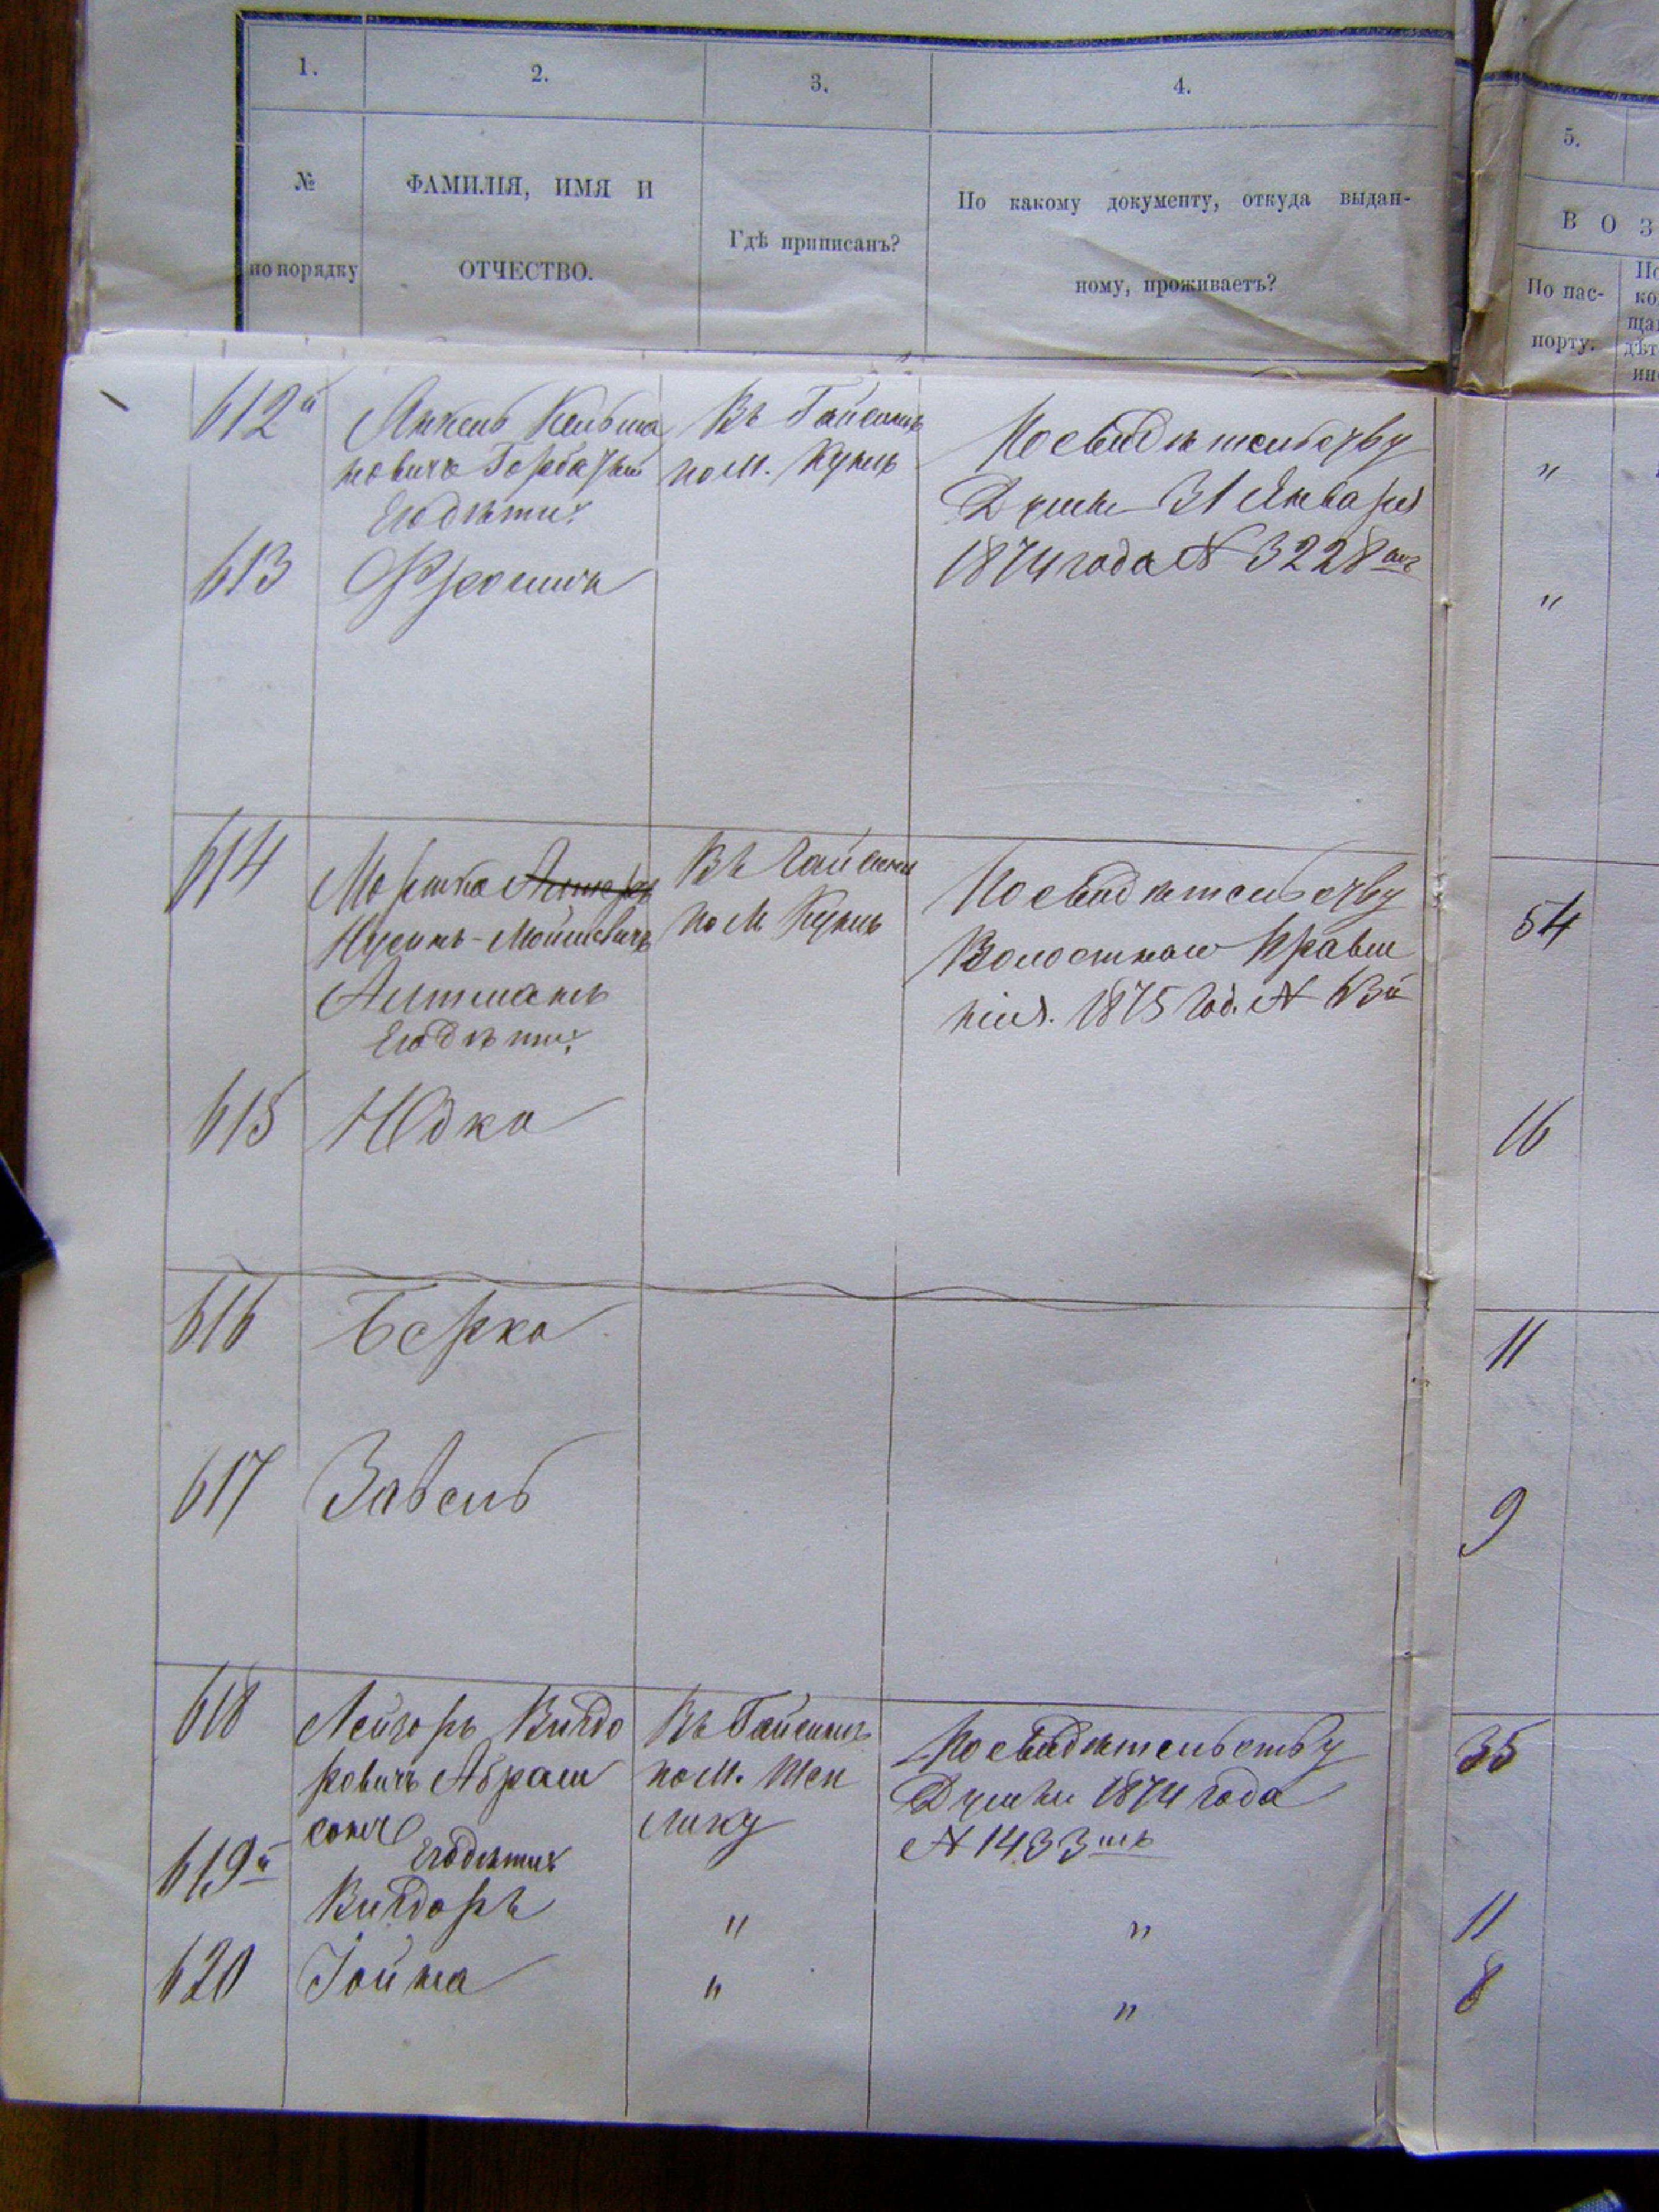 1.
2.
3.
4.
5.
№
по порядку
ФАМИЛІЯ, ИМЯ И
ОТЧЕСТВО.
Гдѣ приписанъ?
По какому документу, откуда выдан-
ному, проживаетъ?
В О З
По пас-
порту.
612й
Янкель Кельма
новичъ
Его дѣти:
Въ Гайсинѣ
по м. Кункъ
По свидѣтельству
Думы 31 Января
1874 года № 3228
"
613
"
614
Мошка
Нусинъ-Мошковичъ
Альтманъ
Его дѣти:
Въ Гайсинѣ
по м Кункъ
По свидѣтельству
Волостнаго Правле
нія. 1875 год. №
54
615
Юдко
16
616
Берко
11
617
Завель
9
618
Лейзоръ Вигдо
ровичъ Абрам
сонъ
Его дѣти:
Въ Гайсинѣ
по м. Теп
лику
По свидѣтельству
Думы 1874 года
№ 1433
35
619й
Вигдоръ
"
"
11
620
Іойна
"
"
8